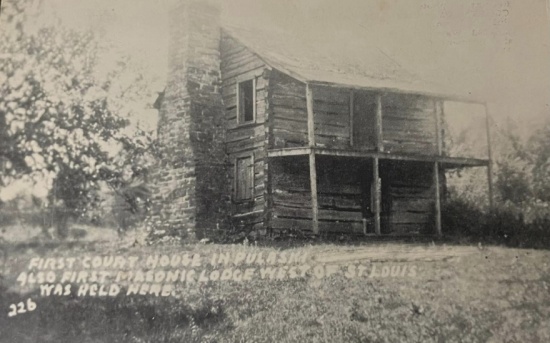 FIRST COURT HOUSE IN PULASKI
ALSO FIRST MASONIC LODGE WEST OF ST. LOUIS
WAS HELD HERE.
226